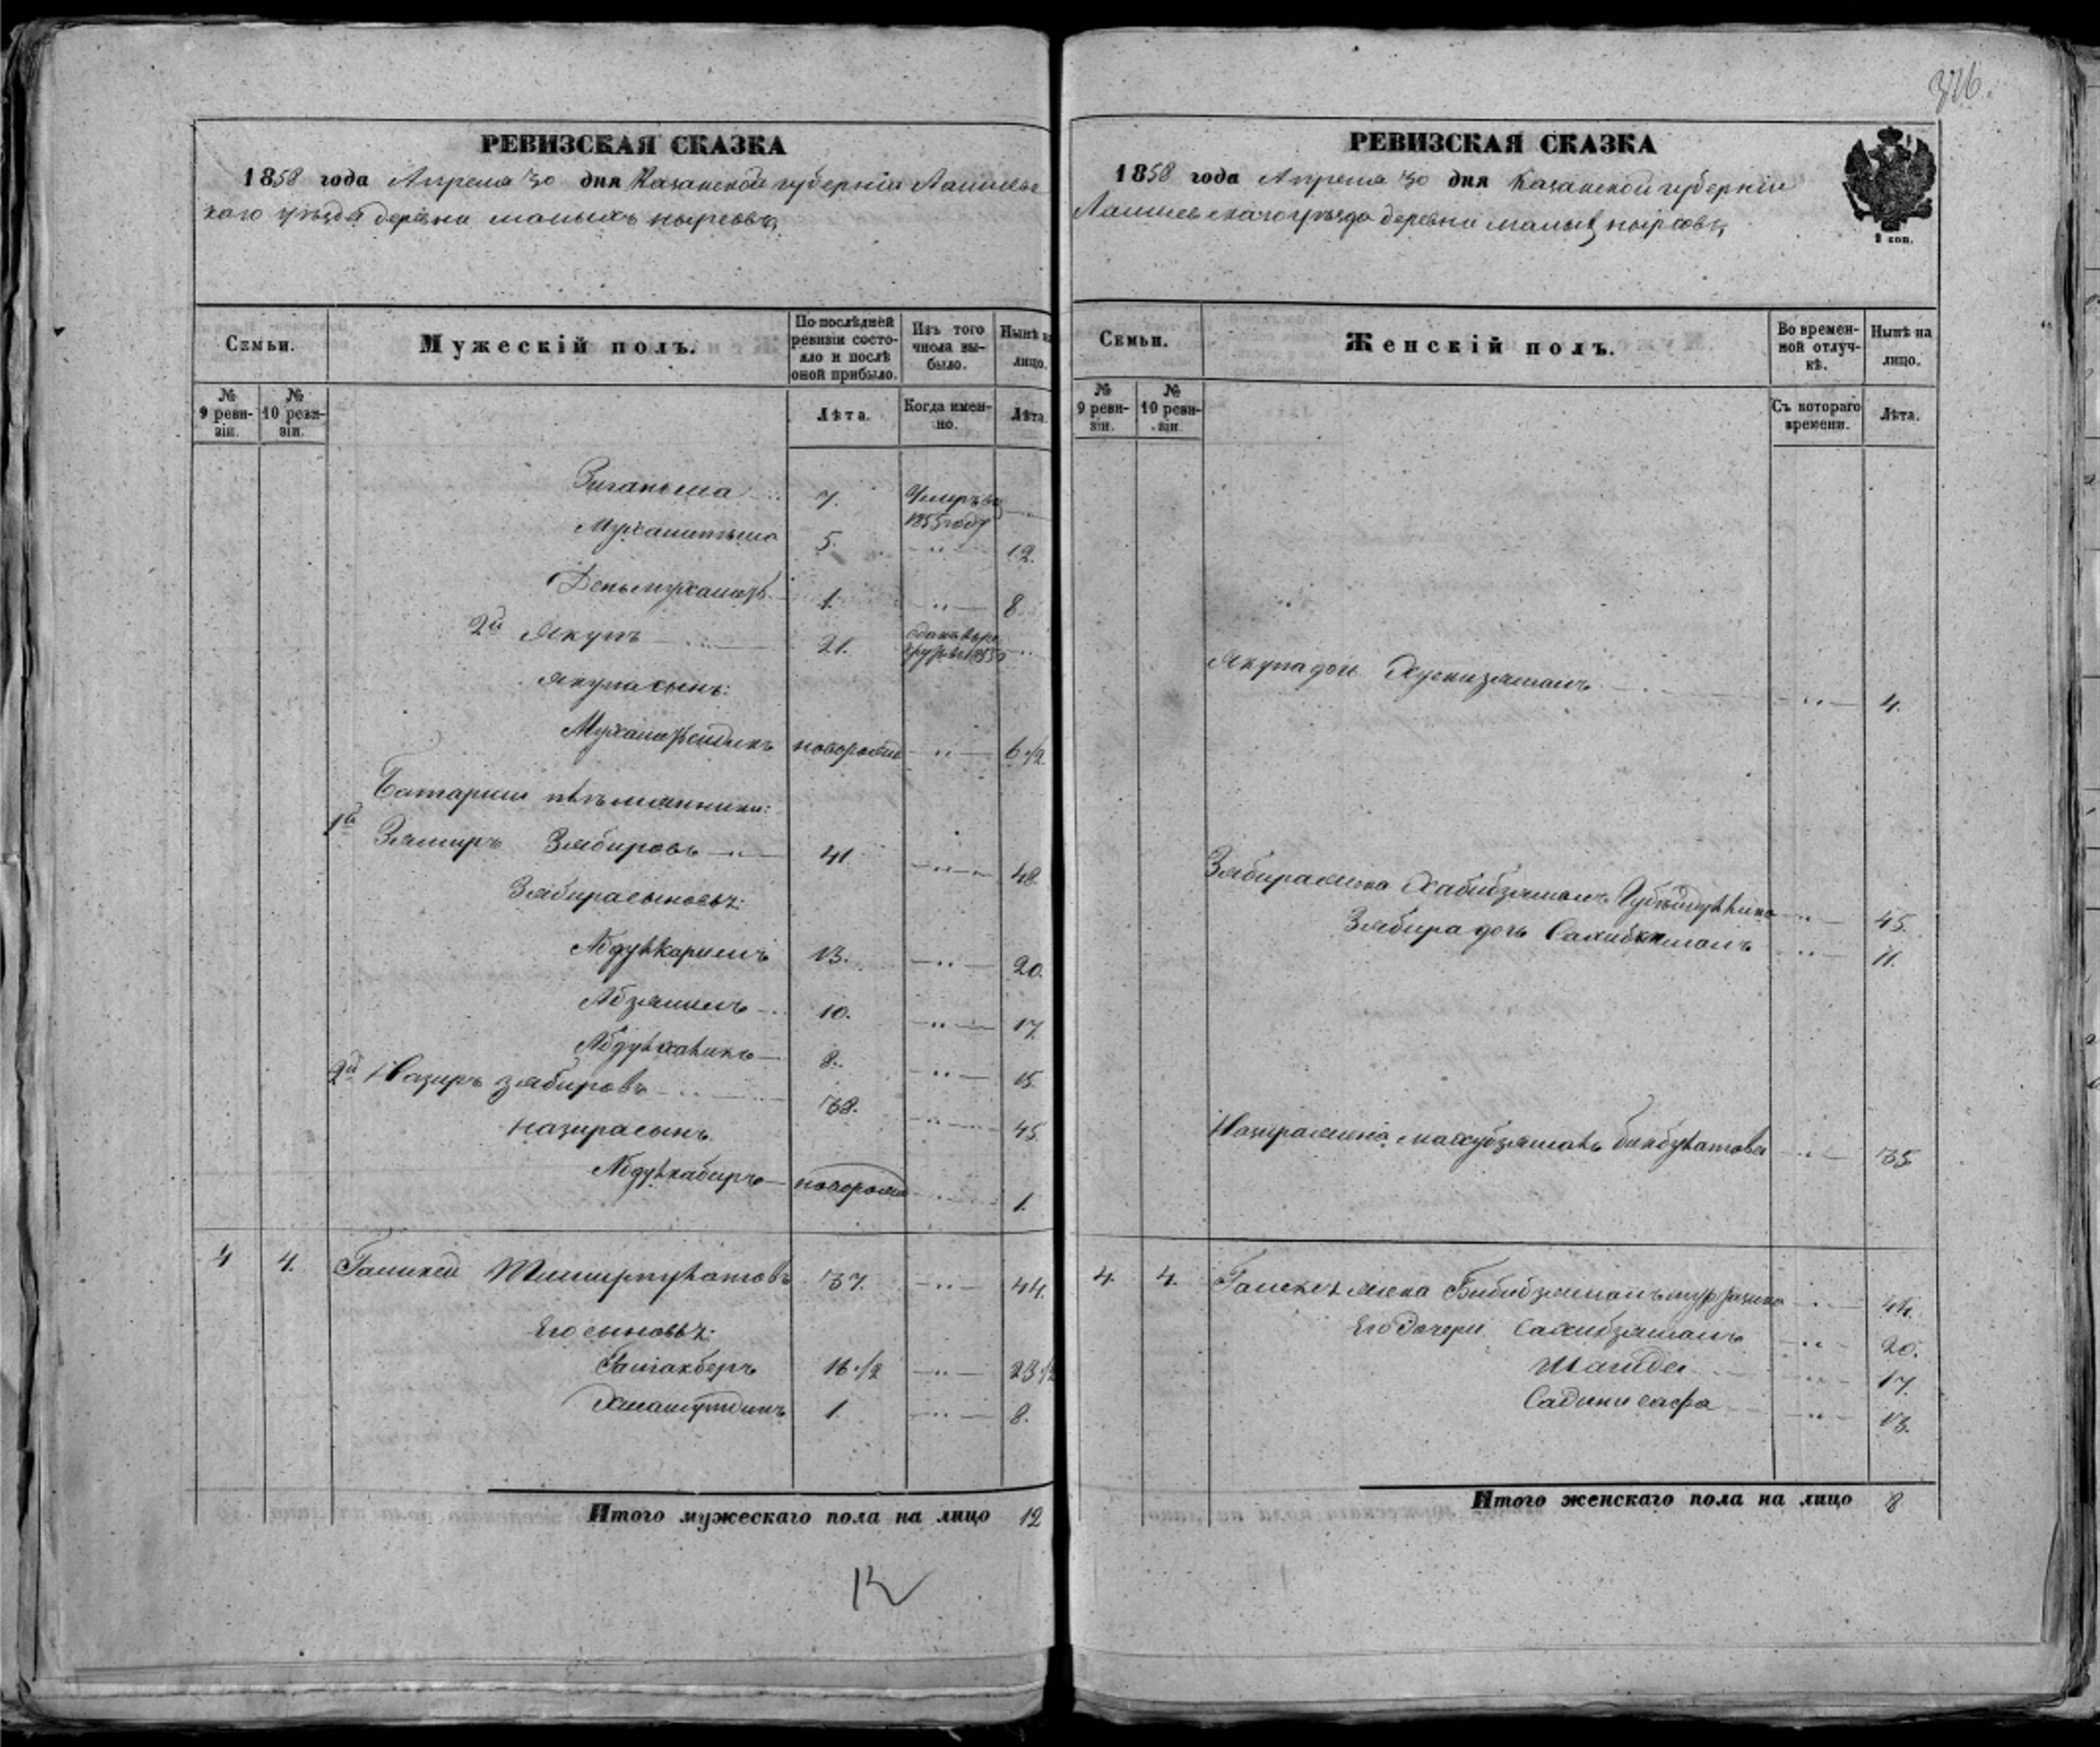 376.
РЕВИЗСКАЯ СКАЗКА
1858 года Апреля 30 дня Казанской губерніи Лаишевс
каго уѣзда деревни малыхъ нырсовъ
Семьи.
Мужескій полъ.
По послѣдней ревизіи состояло и послѣ оной прибыло.
Изъ того числа выбыло.
Нынѣ на лицо.
№ 9 ревизіи.
№ 10 ревизіи.
Лѣта.
Когда именно.
Лѣта.
Зиганьша 7. Умеръ въ 1855 году
Мухаметьша 5. 12.
Деньмухаметъ 1. 8.
2й Якупъ 21. 1855
Якупа сынъ:
новорожд 6 1/2
Батарши племянники:
1й Зямиръ Зябировъ 41 48.
Зябира сыновья:
Абдулкаримъ 13. 20.
Абзямилъ 10. 17.
Абдулхаликъ 8. 15.
2й Назиръ Зябировъ 38. 45.
Назира сынъ
Абдулкабиръ новорожд 1.
4 4. Галикей Темирпулатовъ 37. 44.
Его сыновья:
Галиакберъ 16 1/2 23 1/2
Хисамутдинъ 1. 8.
Итого мужескаго пола на лицо 12
12
РЕВИЗСКАЯ СКАЗКА
1858 года Апреля 30 дня Казанской губерніи
Лаишевскаго уѣзда деревни малых нырсовъ
2 коп.
Семьи.
Женскій полъ.
Во временной отлучкѣ.
Нынѣ на лицо.
№ 9 ревизіи.
№ 10 ревизіи.
Съ котораго времени.
Лѣта.
Якупа дочь Хуснизямалъ 4.
Зябира жена Хабибзямалъ 45.
Зябира дочь 11.
Назира жена Махубзямалъ Бикбулатова 35
4. 4. жена Бибизямалъ 44.
Его дочери Сахибзямалъ 20.
Шагида 17.
Садыкисафа 13.
Итого женскаго пола на лицо 8